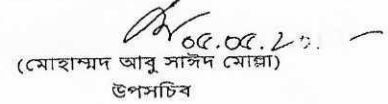 ০৫.০৫.২
(মোহাম্মদ আবু সাঈদ মোল্লা)
উপসচিব